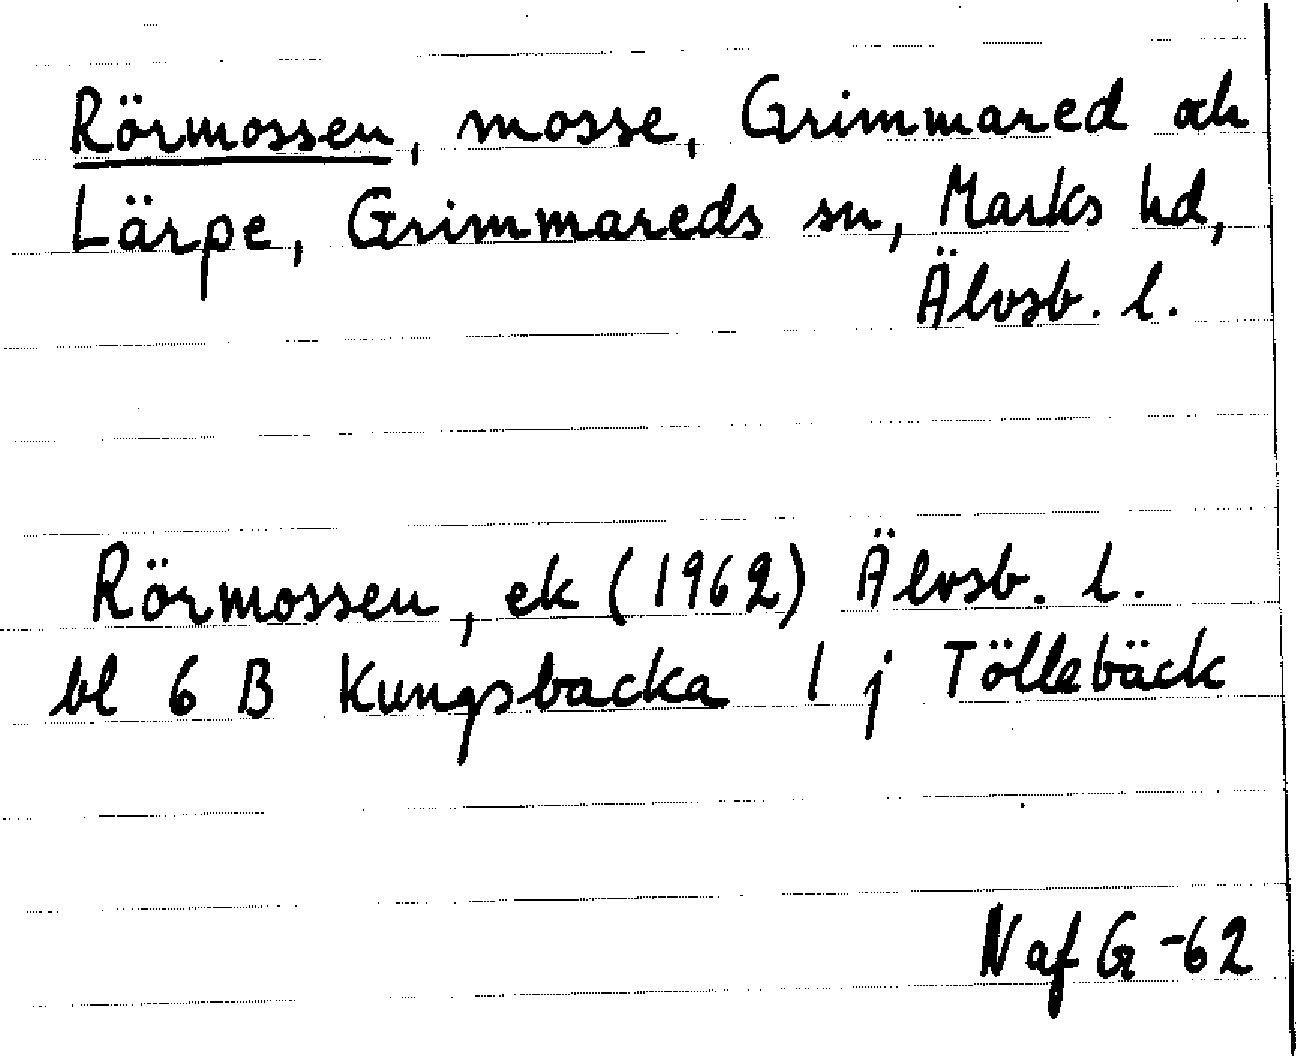 Rörmossen, mosse, Grimmared och
Lärpe, Grimmareds sn, Marks hd,
Älvsb. l.
Rörmossen, ek (1962) Älvsb. l.
bl 6 B Kungsbacka 1 j Töllebäck
N af G -62